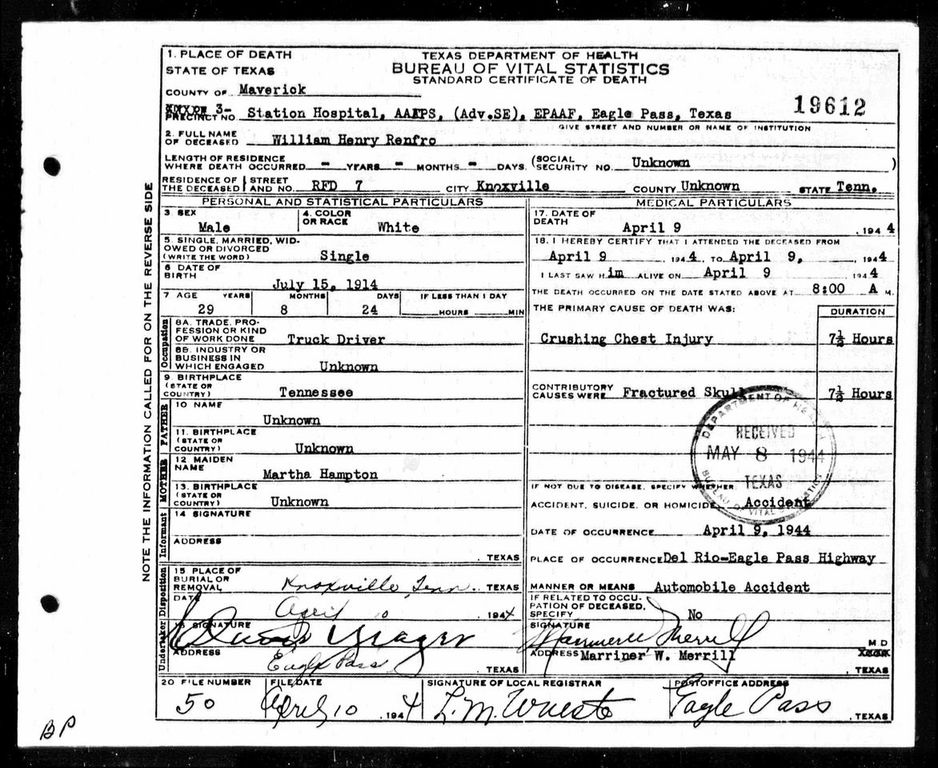 1. PLACE OF DEATH
STATE OF TEXAS
TEXAS DEPARTMENT OF HEALTH
BUREAU OF VITAL STATISTICS
STANDARD CERTIFICATE OF DEATH
COUNTY OF Maverick
PRECINCT NO 3- Station Hospital, AAFPS, (Adv.SE), EPAAF, Eagle Pass, Texas 19612
GIVE STREET AND NUMBER OR NAME OF INSTITUTION
2. FULL NAME OF DECEASED William Henry Renfro
LENGTH OF RESIDENCE WHERE DEATH OCCURRED - YEARS - MONTHS - DAYS (SOCIAL SECURITY NO. Unknown )
RESIDENCE OF THE DECEASED STREET AND NO. RFD 7 CITY Knoxville COUNTY Unknown STATE Tenn.
PERSONAL AND STATISTICAL PARTICULARS
3 SEX Male
4. COLOR OR RACE White
5. SINGLE, MARRIED, WIDOWED OR DIVORCED (WRITE THE WORD) Single
6 DATE OF BIRTH July 15, 1914
7 AGE YEARS MONTHS DAYS IF LESS THAN 1 DAY
29 8 24 HOURS MIN
Occupation
8A. TRADE, PROFESSION OR KIND OF WORK DONE Truck Driver
8B. INDUSTRY OR BUSINESS IN WHICH ENGAGED Unknown
9 BIRTHPLACE (STATE OR COUNTRY) Tennessee
FATHER
10 NAME Unknown
11. BIRTHPLACE (STATE OR COUNTRY) Unknown
MOTHER
12 MAIDEN NAME Martha Hampton
13. BIRTHPLACE (STATE OR COUNTRY) Unknown
Informant
14 SIGNATURE
ADDRESS . TEXAS
Disposition
15 PLACE OF BURIAL OR REMOVAL Knoxville, Tenn. TEXAS
DATE April 10 1944
Undertaker
SIGNATURE
ADDRESS Eagle Pass . TEXAS
MEDICAL PARTICULARS
17. DATE OF DEATH April 9 , 1944
18. I HEREBY CERTIFY THAT I ATTENDED THE DECEASED FROM
April 9 1944, TO April 9, , 1944
I LAST SAW Him ALIVE ON April 9 1944
THE DEATH OCCURRED ON THE DATE STATED ABOVE AT 8:00 A M.
THE PRIMARY CAUSE OF DEATH WAS: DURATION
Crushing Chest Injury 7½ Hours
CONTRIBUTORY CAUSES WERE Fractured Skull 7½ Hours
DEPARTMENT OF HEALTH
RECEIVED
MAY 8 1944
TEXAS
BUREAU OF VITAL STATISTICS
IF NOT DUE TO DISEASE, SPECIFY WHETHER
ACCIDENT, SUICIDE, OR HOMICIDE Accident
DATE OF OCCURRENCE April 9, 1944
PLACE OF OCCURRENCE Del Rio-Eagle Pass Highway
MANNER OR MEANS Automobile Accident
IF RELATED TO OCCUPATION OF DECEASED, SPECIFY No
SIGNATURE Marriner W Merrill M D
ADDRESS Marriner W. Merrill TEXAS
20 FILE NUMBER 50
FILE DATE April 10 , 1944
SIGNATURE OF LOCAL REGISTRAR L. M. Wueste
POSTOFFICE ADDRESS Eagle Pass . TEXAS
NOTE THE INFORMATION CALLED FOR ON THE REVERSE SIDE
BP